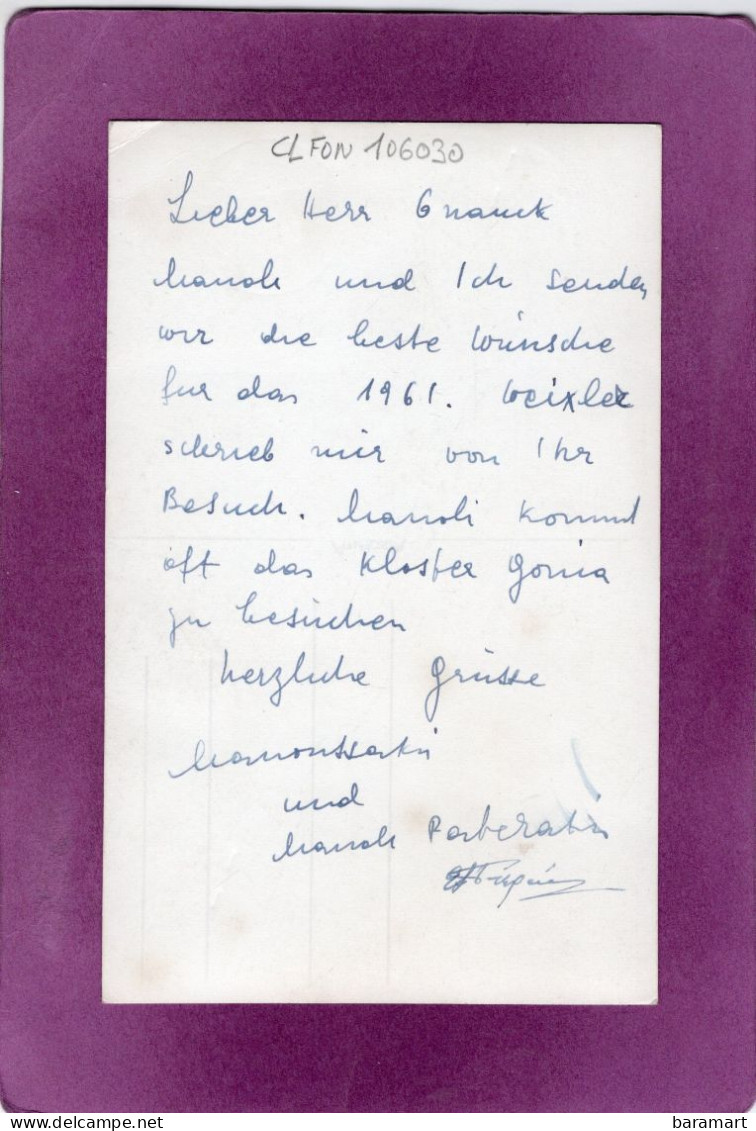 CLFON 106030
Lieber Herr Gnauck
Manoli und Ich senden
wir die beste Wünsche
für das 1961. Weixler
schrieb mir von Ihr
Besuch. Manoli kommt
oft das Kloster Gonia
zu besuchen
herzliche Grüsse
Manoussakis
und
Manoli
baramart